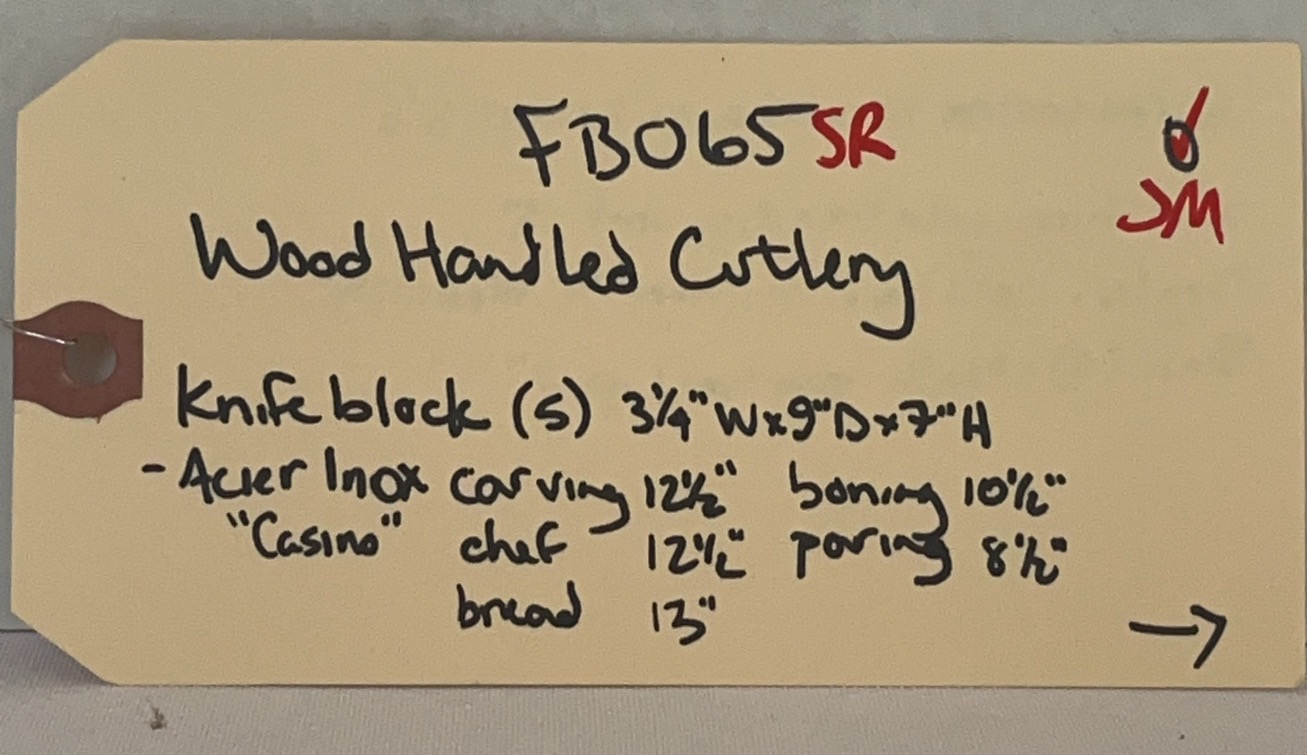 FB065 SR
JM
Wood Handled Cutlery
Knife block (5) 3¼" W x 9" D x 7" H
- Acier Inox carving 12½" boning 10½"
"Casino" chef 12½" paring 8½"
bread 13"
→